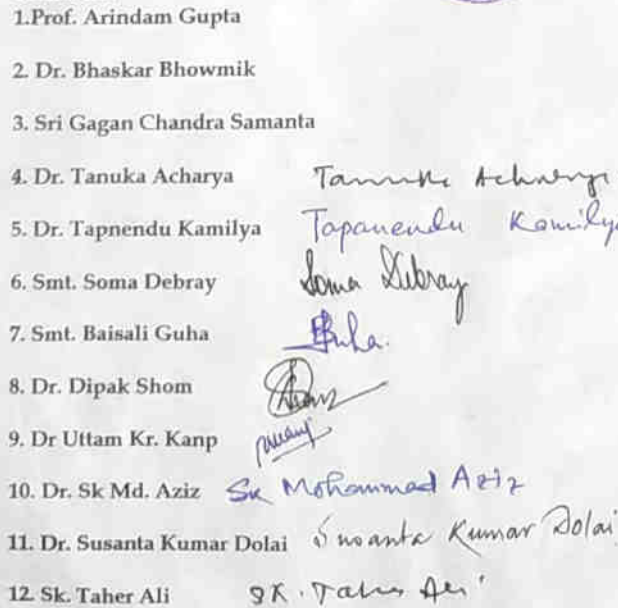 1.Prof. Arindam Gupta
2. Dr. Bhaskar Bhowmik
3. Sri Gagan Chandra Samanta
4. Dr. Tanuka Acharya Tanuka Acharya
5. Dr. Tapnendu Kamilya Tapanendu Kamilya
6. Smt. Soma Debray Soma Debray
7. Smt. Baisali Guha BGuha.
8. Dr. Dipak Shom
9. Dr Uttam Kr. Kanp
10. Dr. Sk Md. Aziz Sk Mohammad Aziz
11. Dr. Susanta Kumar Dolai Susanta Kumar Dolai
12. Sk. Taher Ali SK. Taher Ali